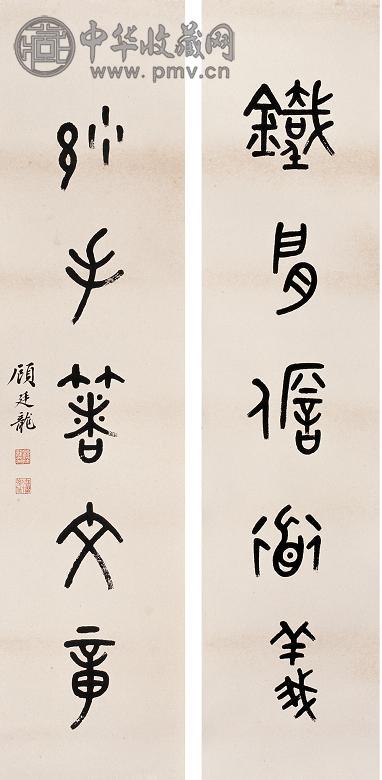 中华收藏网
www.pmv.cn
鐵肩儋道義
妙手著文章
顧廷龍